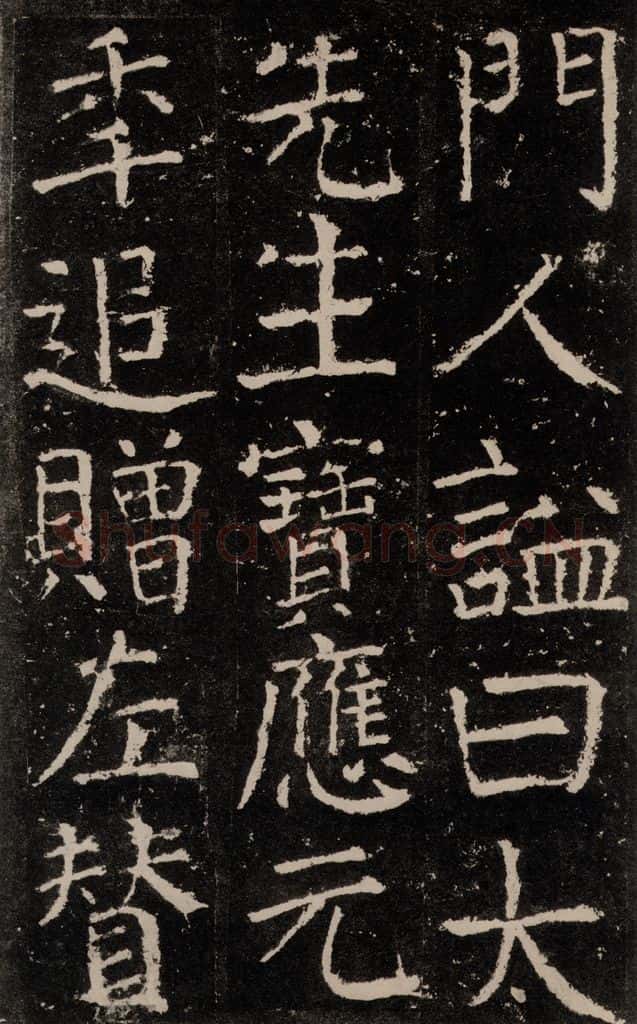 門人謚曰太
先生寶應元
秊追贈左賛
Shufawang.CN